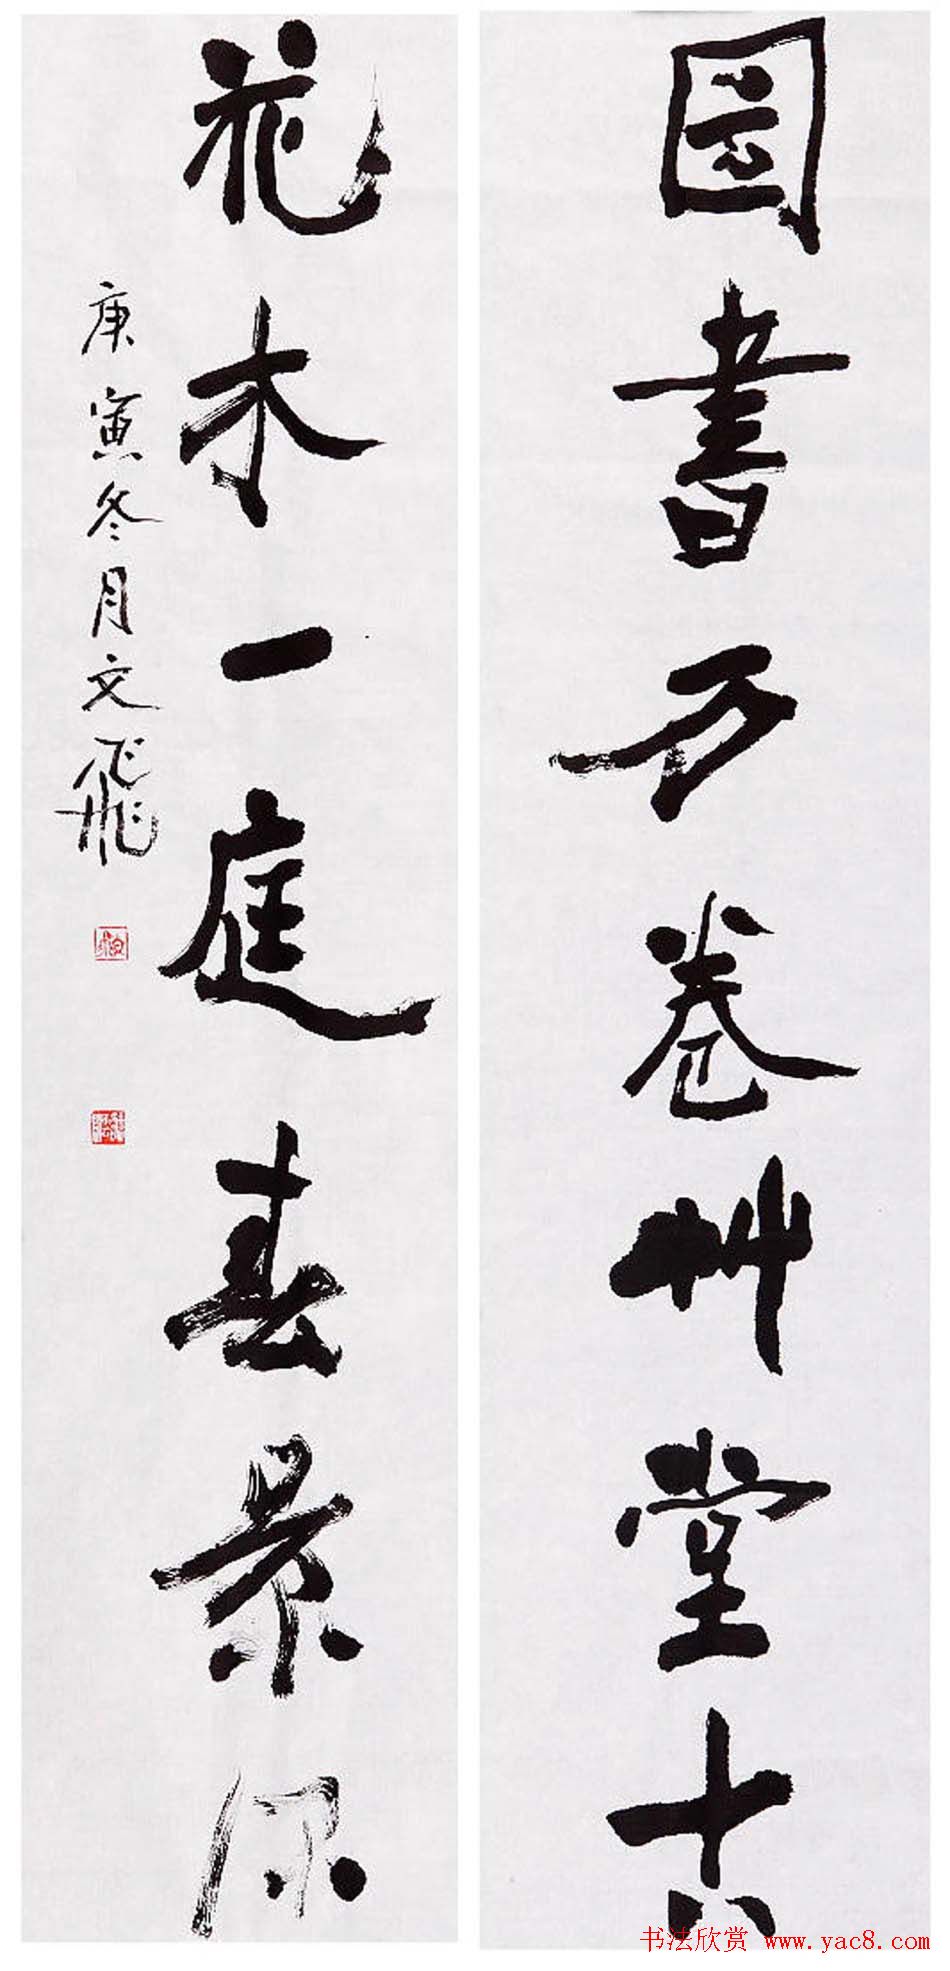 图书万卷艸堂古
花木一庭春景深
庚寅冬月文飛
书法欣赏 www.yac8.com